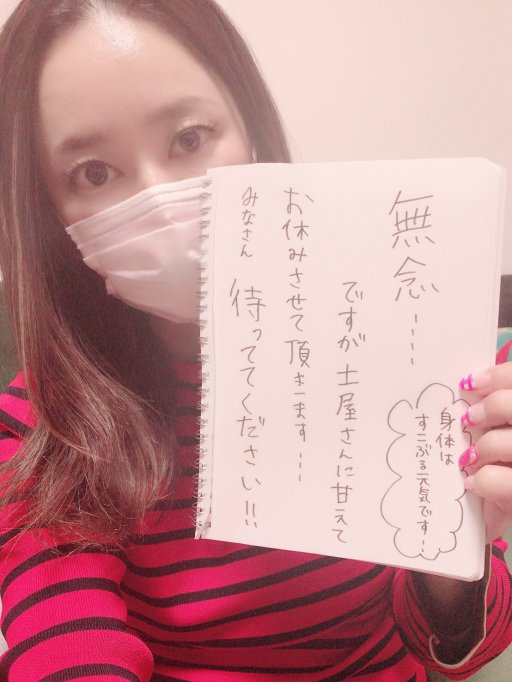 無念....
ですが土屋さんに甘えて
お休みさせて頂きます...
みなさん 待っててください!!
身体は
すこぶる元気です...